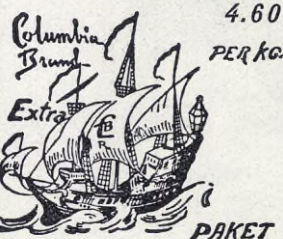 Columbia
Brand
Extra
CB
R
4.60
PER KG.
i
PAKET